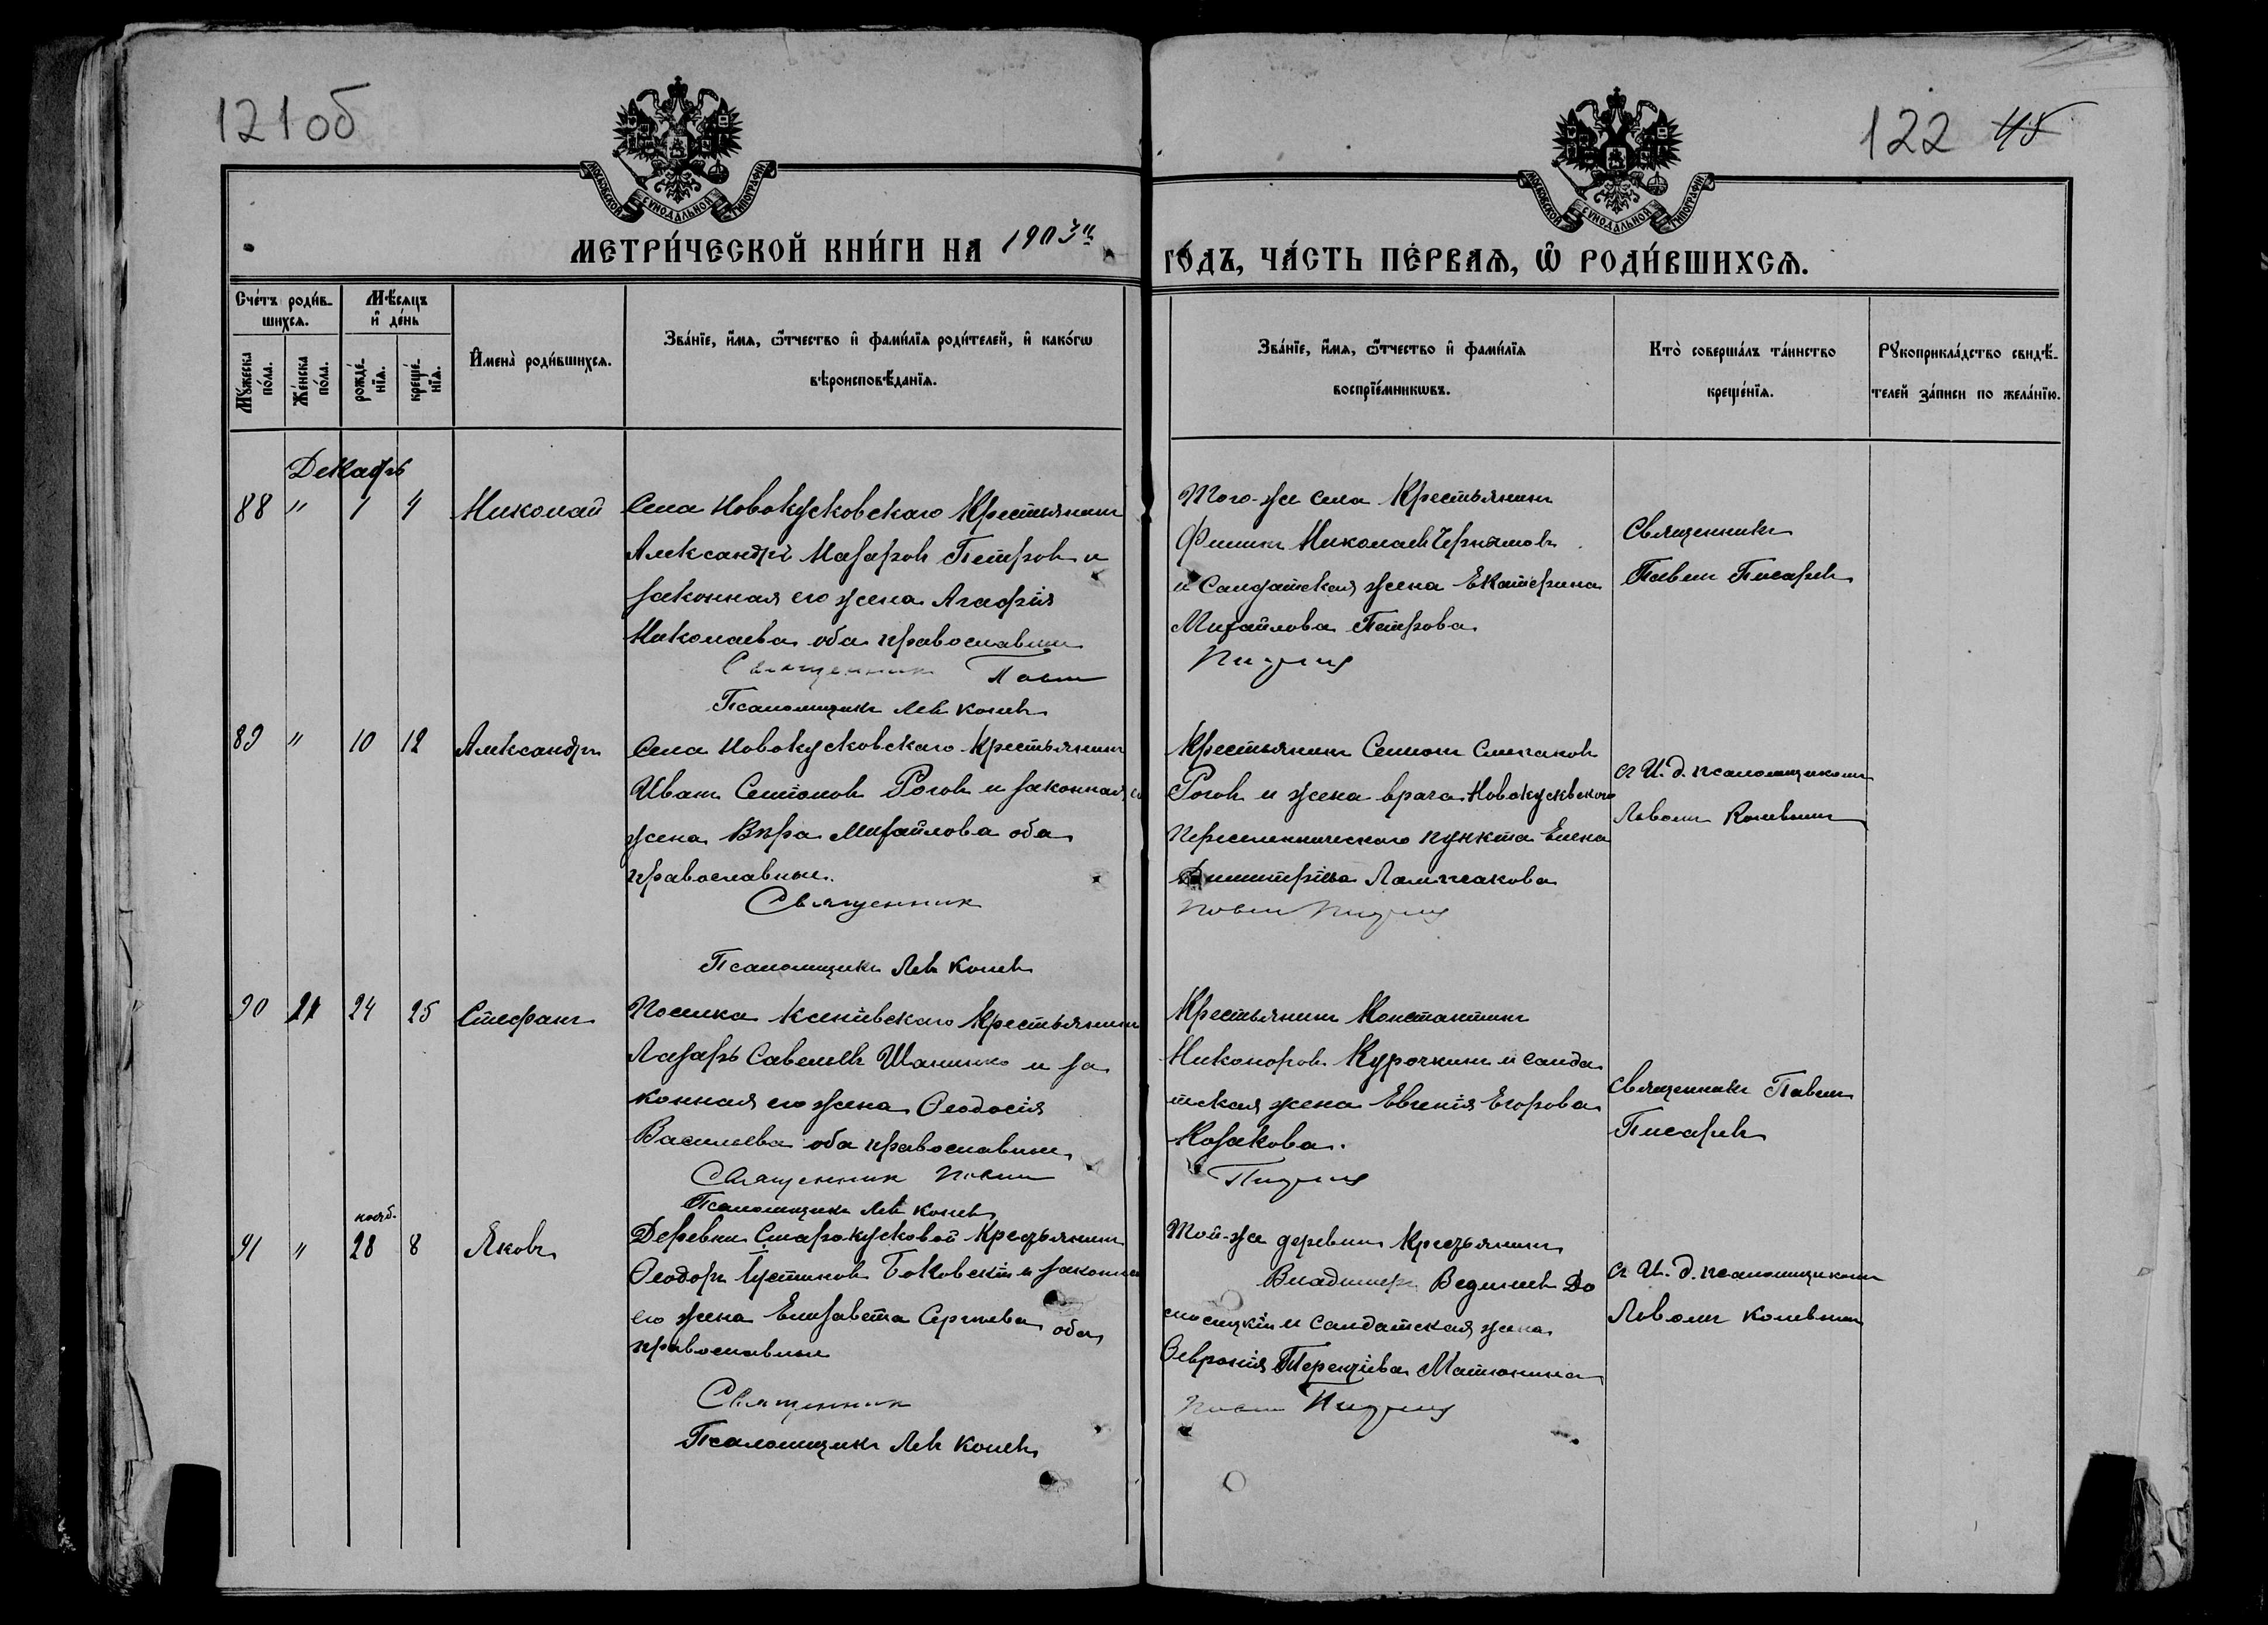 121об
122 45
МОСКОВСКОЙ СѴНОДАЛЬНОЙ ТИПОГРАФІИ
МОСКОВСКОЙ СѴНОДАЛЬНОЙ ТИПОГРАФІИ
МЕТРИ́ЧЕСКОЙ КНИ́ГИ НА 1903й
ГО́ДЪ, ЧА́СТЬ ПЕ́РВАѦ, Ѽ РОДИ́ВШИХСѦ.
Сче́тъ роди́в-
шихсѧ.
Мѣ́сѧцъ
и҆ де́нь
Мꙋ́жеска
по́ла.
Же́нска
по́ла.
рожде́-
нїѧ.
креще́-
нїѧ.
И҆мена̀ роди́вшихсѧ.
Зва́нїе, и҆́мѧ, ѻ҆́тчество и҆ фами́лїѧ роди́телей, и҆ како́гѡ
вѣроисповѣ́данїѧ.
Зва́нїе, и҆́мѧ, ѻ҆́тчество и҆ фами́лїѧ
воспрїе́мникѡвъ.
Кто̀ соверша́лъ та́инство
креще́нїѧ.
Рꙋкоприкла́дство свидѣ́-
телей за́писи по жела́нїю.
Декабрь
88 " 1 4 Николай
Села Новокусковскаго Крестьянинъ
Александръ Назаровъ Петровъ и
законная его жена Агафія
Николаева оба православные
Священник Павел
Псаломщикъ Левъ Коневъ
Того-же села Крестьянинъ
Филиппъ Николаевъ
и Солдатская жена Екатерина
Михайлова Петрова
Писарев
Священникъ
Павелъ Писаревъ
89 " 10 12 Александръ
Села Новокусковскаго Крестьянинъ
Иванъ Семіоновъ Роговъ и законная его
жена Вѣра Михайлова оба
православные.
Священник
Псаломщикъ Левъ Коневъ
Крестьянинъ Семіонъ Степановъ
Роговъ и жена врача Новокусковскаго
Переселенческаго пункта Елена
Димитріева
Павел Писарев
съ И. д. псаломщикомъ
Львомъ Коневымъ
90 " 24 25 Стефанъ
Поселка Ксеніевскаго Крестьянинъ
Лазарь Савельевъ и за
конная его жена Ѳеодосія
Васильева оба православные
Священник Павел
Псаломщикъ Левъ Коневъ
Крестьянинъ Константинъ
Никоноровъ Курочкинъ и солда
тская жена Евгенія Егорова
Козакова.
Писарев
Священникъ Павелъ
Писаревъ
нояб.
91 " 28 8 Яковъ
Деревни Старо-кусковой Крестьянинъ
Ѳеодоръ Іустиновъ Боковскій и законная
его жена Елизавета Сергѣева оба
православные
Священник
Псаломщикъ Левъ Коневъ
Той-же деревни Крестьянинъ
Владимиръ
и солдатская жена
Ѳевронія Терентіева Матюнина
Павел Писарев
съ И. д. псаломщикомъ
Львомъ Коневымъ